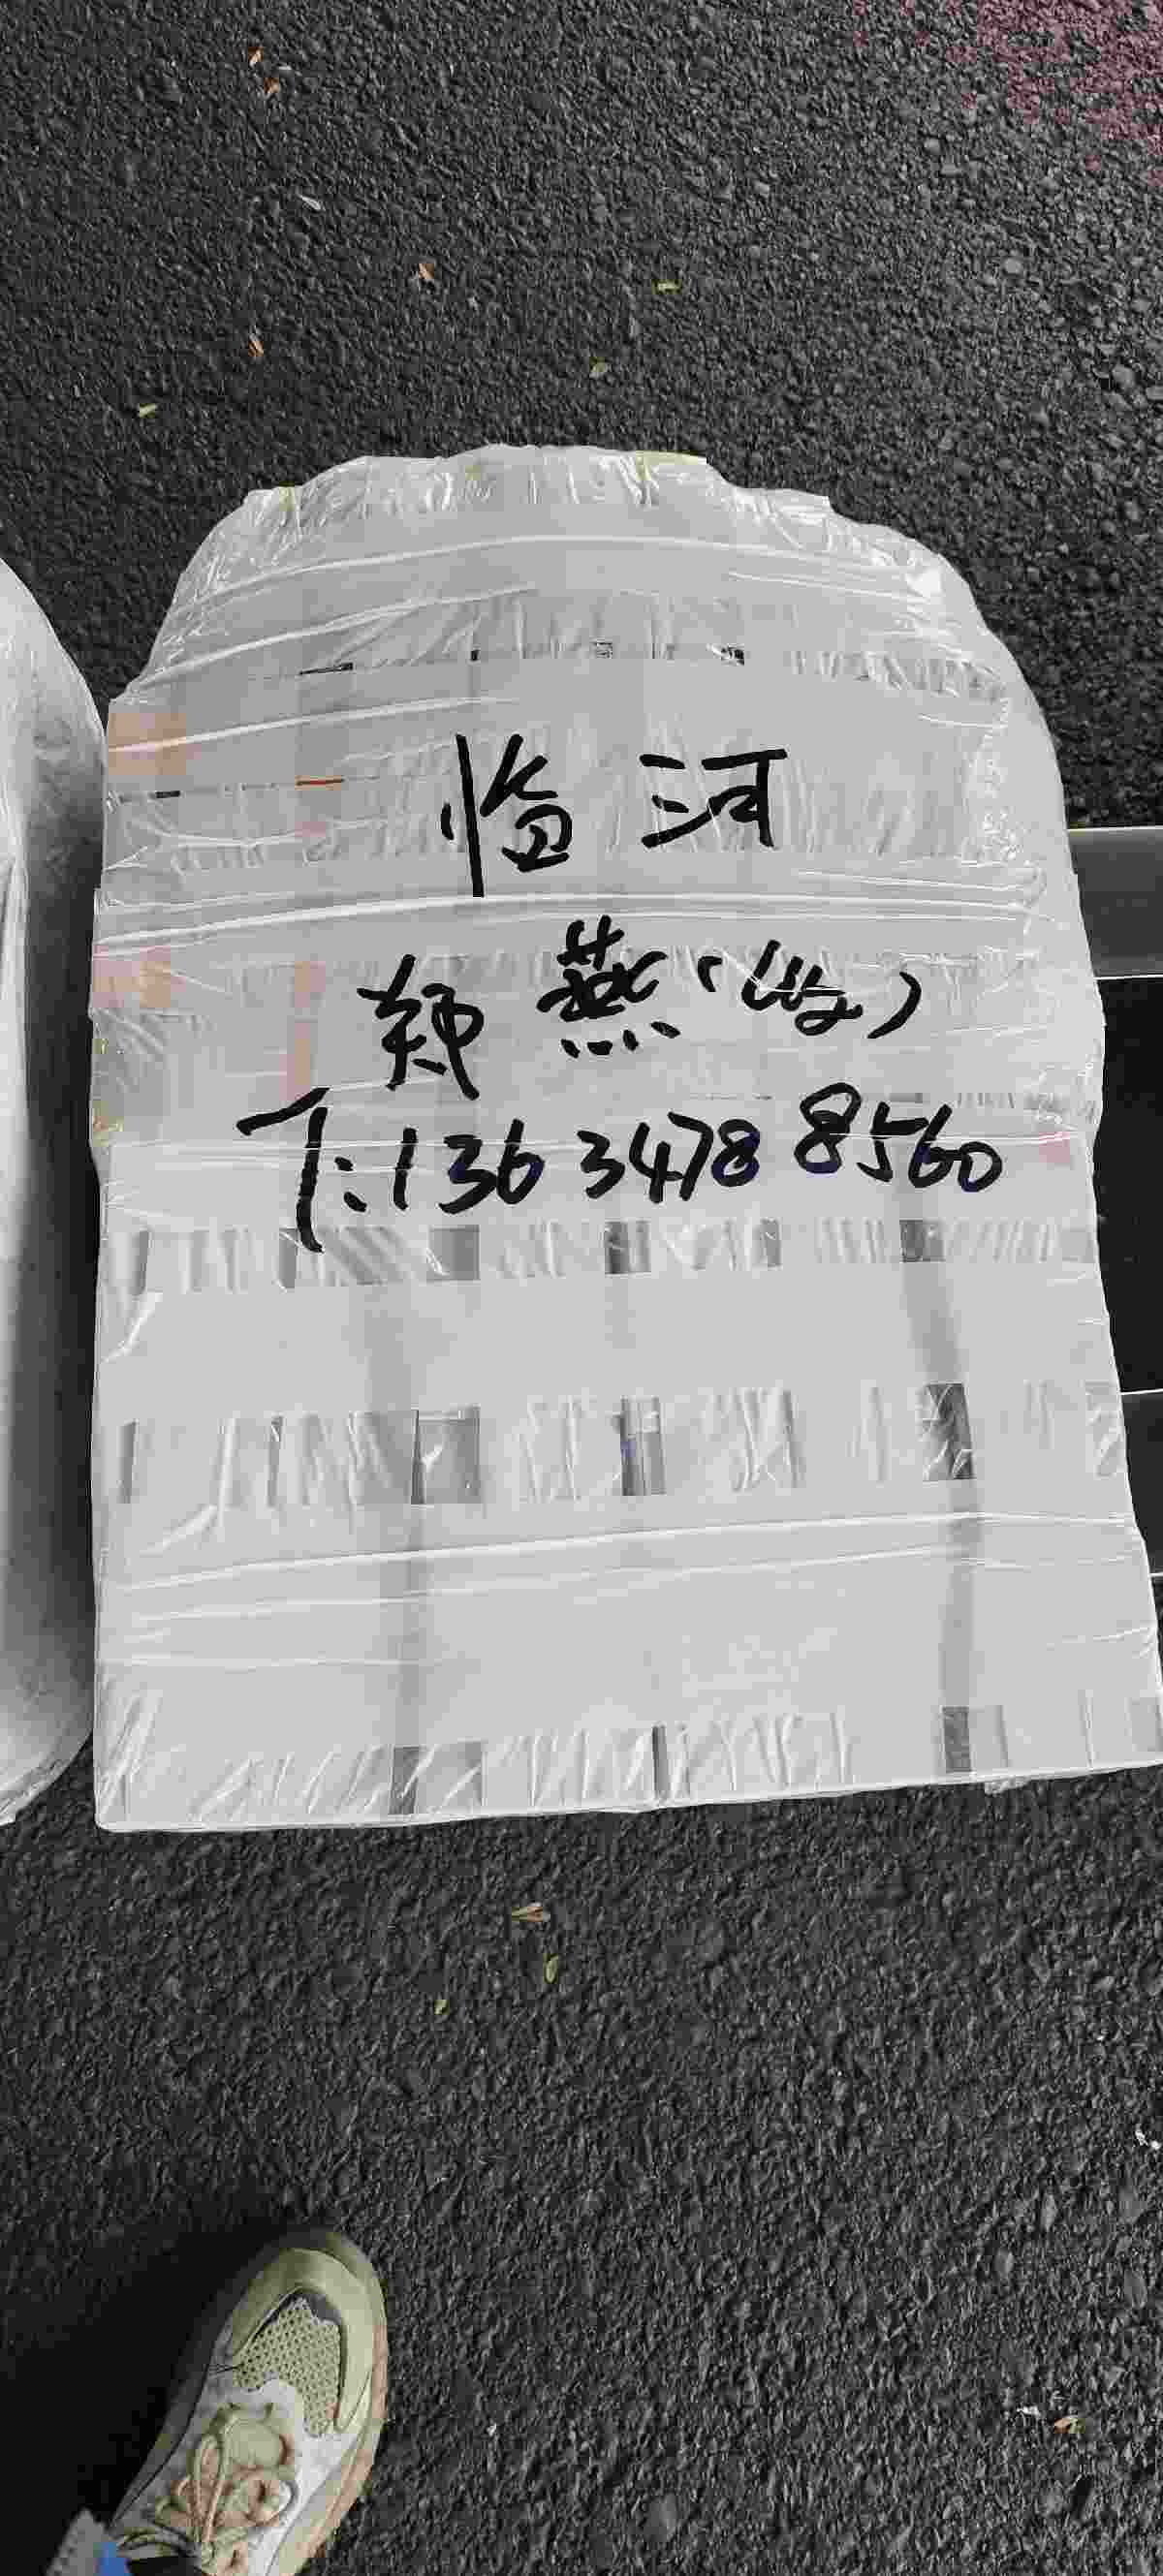 临河
郑燕(收)
T:136 3478 8560